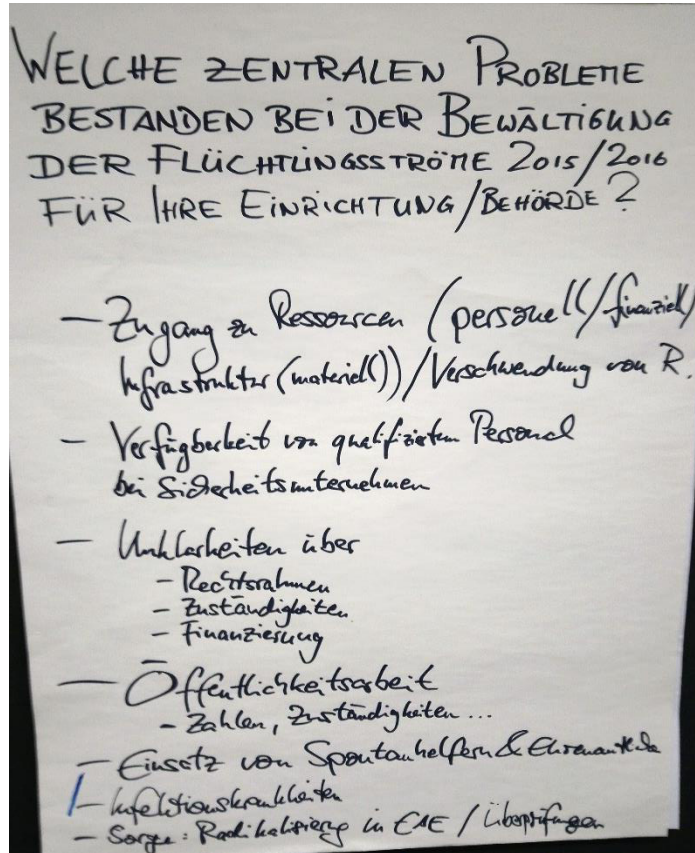 WELCHE ZENTRALEN PROBLEME
BESTANDEN BEI DER BEWÄLTIGUNG
DER FLÜCHTLINGSSTRÖME 2015/2016
FÜR IHRE EINRICHTUNG/BEHÖRDE?
— Zugang zu Ressourcen (personell/finanziell/
Infrastruktur (materiell))/Verschwendung von R.
- Verfügbarkeit von qualifiziertem Personal
bei Sicherheitsunternehmen
— Unklarheiten über
- Rechtsrahmen
- Zuständigkeiten
- Finanzierung
— Öffentlichkeitsarbeit
- Zahlen, Zuständigkeiten...
- Einsatz von Spontanhelfern & Ehrenamtliche
- Infektionskrankheiten
- Sorge: Radikalisierung in EAE / Überprüfungen